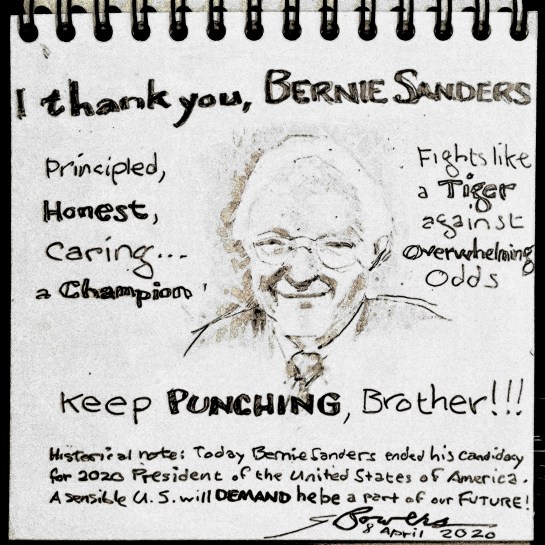 I thank you, BERNIE SANDERS
Principled,
Honest,
Caring...
a Champion
Fights like
a Tiger
against
Overwhelming
Odds
Keep PUNCHING, Brother!!!
Historical note: Today Bernie Sanders ended his candidacy
for 2020 President of the United States of America.
A sensible U.S. will DEMAND he be a part of our FUTURE!
S Bowers
8 April 2020